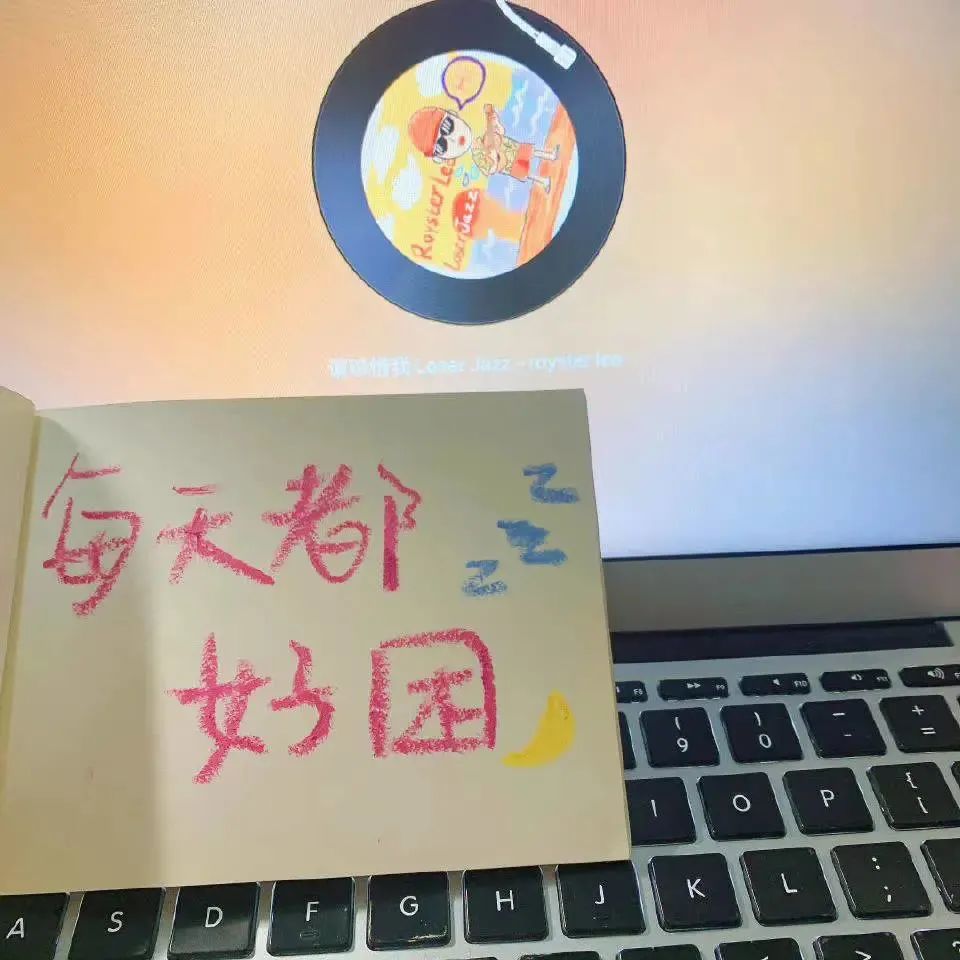 Royster Lee
Loser Jazz
Loser Jazz - royster lee
每天都
z z z
好困
F8 F9 F10 F11 F12
( 9 ) 0 _ - + =
I O P { [
A S D F G H J K L : ;
< >